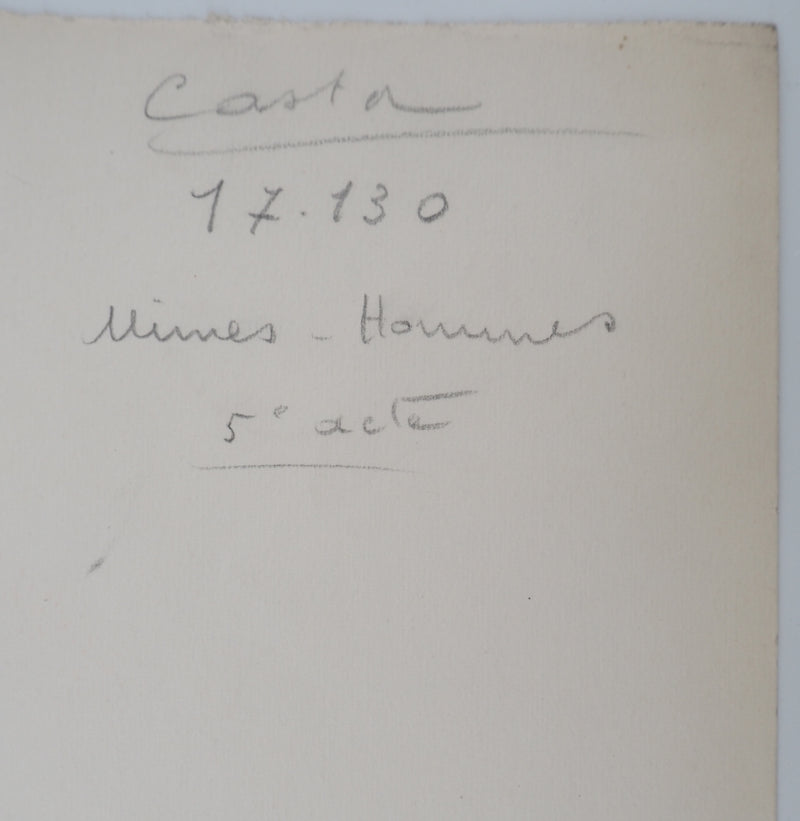 Casta
17.130
Mimes - Hommes
5e acte